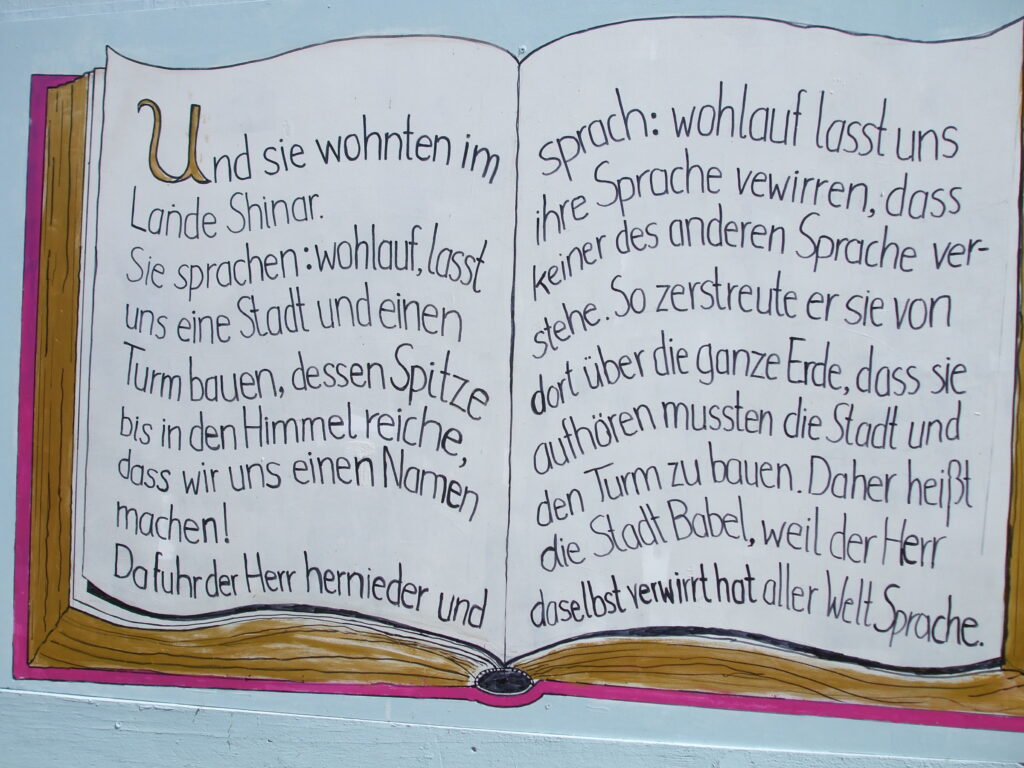 Und sie wohnten im
Lande Shinar.
Sie sprachen: wohlauf, lasst
uns eine Stadt und einen
Turm bauen, dessen Spitze
bis in den Himmel reiche,
dass wir uns einen Namen
machen!
Da fuhr der Herr hernieder und
sprach: wohlauf lasst uns
ihre Sprache vewirren, dass
keiner des anderen Sprache ver-
stehe. So zerstreute er sie von
dort über die ganze Erde, dass sie
aufhören mussten die Stadt und
den Turm zu bauen. Daher heißt
die Stadt Babel, weil der Herr
daselbst verwirrt hat aller Welt Sprache.